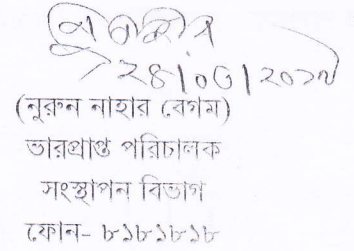 ২৪|০৩|২০১৭
(নুরুন নাহার বেগম)
ভারপ্রাপ্ত পরিচালক
সংস্থাপন বিভাগ
ফোন- ৮১৮১৮১৮